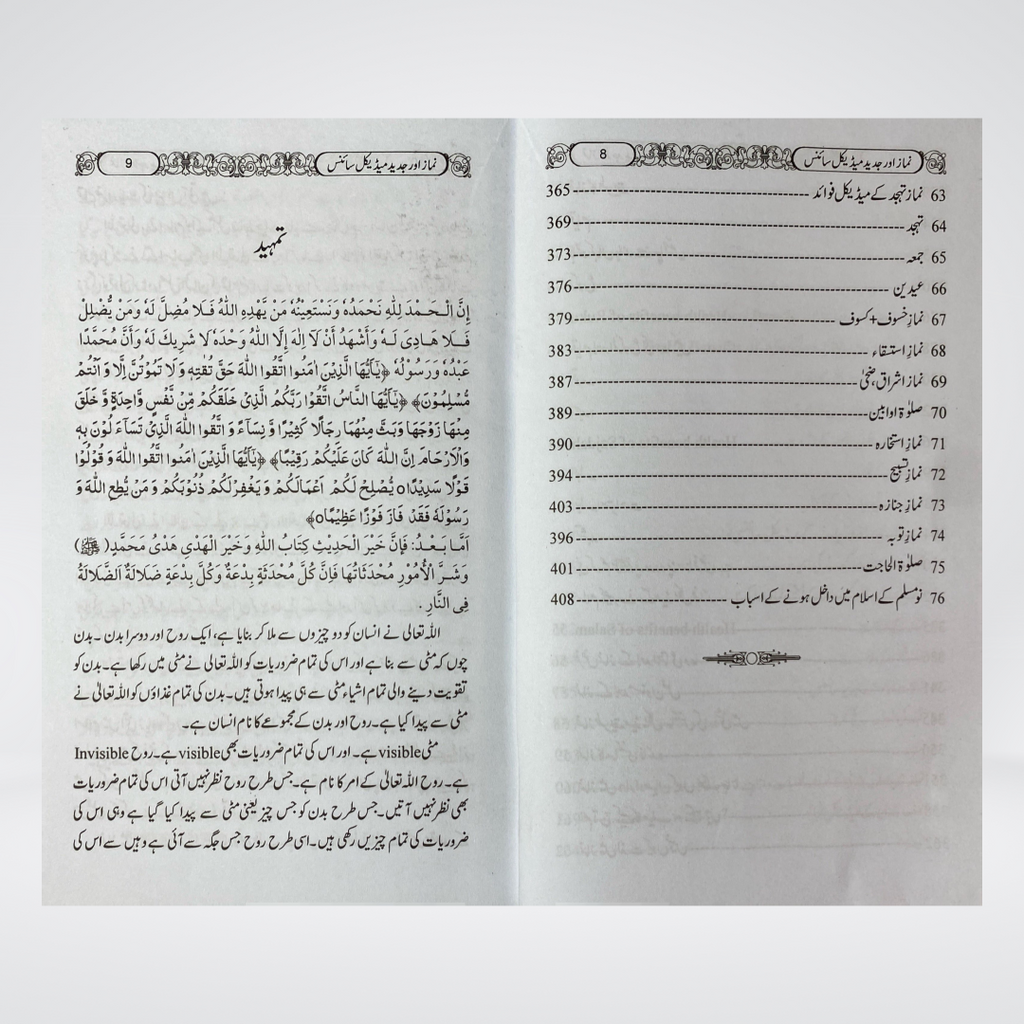 نماز اور جدید میڈیکل سائنس 8
63 نماز تہجد کے میڈیکل فوائد 365
64 تہجد 369
65 جمعہ 373
66 عیدین 376
67 نمازِ خسوف + کسوف 379
68 نمازِ استسقاء 383
69 نماز اشراق، ضحیٰ 387
70 صلوٰۃ اوابین 389
71 نمازِ استخارہ 390
72 نمازِ تسبیح 394
73 نمازِ جنازہ 403
74 نمازِ توبہ 396
75 صلوٰۃ الحاجت 401
76 نو مسلم کے اسلام میں داخل ہونے کے اسباب 408
نماز اور جدید میڈیکل سائنس 9
تمہید
إِنَّ الْحَمْدَ لِلّٰهِ نَحْمَدُهٗ وَنَسْتَعِيْنُهٗ مَنْ يَّهْدِهِ اللّٰهُ فَلَا مُضِلَّ لَهٗ وَمَنْ يُّضْلِلْ
فَلَا هَادِىَ لَهٗ وَأَشْهَدُ أَنْ لَآ اِلٰهَ إِلَّا اللّٰهُ وَحْدَهٗ لَا شَرِيْكَ لَهٗ وَأَنَّ مُحَمَّدًا
عَبْدُهٗ وَرَسُوْلُهٗ ﴿يٰٓاَيُّهَا الَّذِيْنَ اٰمَنُوا اتَّقُوا اللّٰهَ حَقَّ تُقٰتِهٖ وَلَا تَمُوْتُنَّ اِلَّا وَاَنْتُمْ
مُّسْلِمُوْنَ﴾ ﴿يٰٓاَيُّهَا النَّاسُ اتَّقُوْا رَبَّكُمُ الَّذِيْ خَلَقَكُمْ مِّنْ نَّفْسٍ وَّاحِدَةٍ وَّ خَلَقَ
مِنْهَا زَوْجَهَا وَبَثَّ مِنْهُمَا رِجَالًا كَثِيْرًا وَّ نِسَآءً وَ اتَّقُوا اللّٰهَ الَّذِيْ تَسَآءَ لُوْنَ بِهٖ
وَالْاَرْحَامَ اِنَّ اللّٰهَ كَانَ عَلَيْكُمْ رَقِيْبًا﴾ ﴿يٰٓاَيُّهَا الَّذِيْنَ اٰمَنُوا اتَّقُوا اللّٰهَ وَ قُوْلُوْا
قَوْلًا سَدِيْدًا٥ يُّصْلِحْ لَكُمْ اَعْمَالَكُمْ وَ يَغْفِرْ لَكُمْ ذُنُوْبَكُمْ وَ مَنْ يُّطِعِ اللّٰهَ وَ
رَسُوْلَهٗ فَقَدْ فَازَ فَوْزًا عَظِيْمًا٥﴾
اَمَّا بَعْدُ: فَإِنَّ خَيْرَ الْحَدِيْثِ كِتَابُ اللّٰهِ وَخَيْرَ الْهَدْيِ هَدْىُ مَحَمَّدٍ (ﷺ)
وَشَرَّ الْأُمُوْرِ مُحْدَثَاتُهَا فَإِنَّ كُلَّ مُحْدَثَةٍ بِدْعَةٌ وَكُلَّ بِدْعَةٍ ضَلَالَةٌ اَلضَّلَالَةُ
فِى النَّارِ .
اللہ تعالی نے انسان کو دو چیزوں سے ملا کر بنایا ہے، ایک روح اور دوسرا بدن ۔ بدن
چوں کہ مٹی سے بنا ہے اور اس کی تمام ضروریات کو اللہ تعالی نے مٹی میں رکھا ہے۔ بدن کو
تقویت دینے والی تمام اشیاء مٹی سے ہی پیدا ہوتی ہیں۔ بدن کی تمام غذاؤں کو اللہ تعالی نے
مٹی سے پیدا کیا ہے۔ روح اور بدن کے مجموعے کا نام انسان ہے۔
مٹی visible ہے۔ اور اس کی تمام ضروریات بھی visible ہے۔ روح Invisible
ہے۔ روح اللہ تعالیٰ کے امر کا نام ہے۔ جس طرح روح نظر نہیں آتی اس کی تمام ضروریات
بھی نظر نہیں آتیں۔ جس طرح بدن کو جس چیز یعنی مٹی سے پیدا کیا گیا ہے وہی اس کی
ضروریات کی تمام چیزیں رکھی ہیں۔ اسی طرح روح جس جگہ سے آئی ہے وہیں سے اس کی